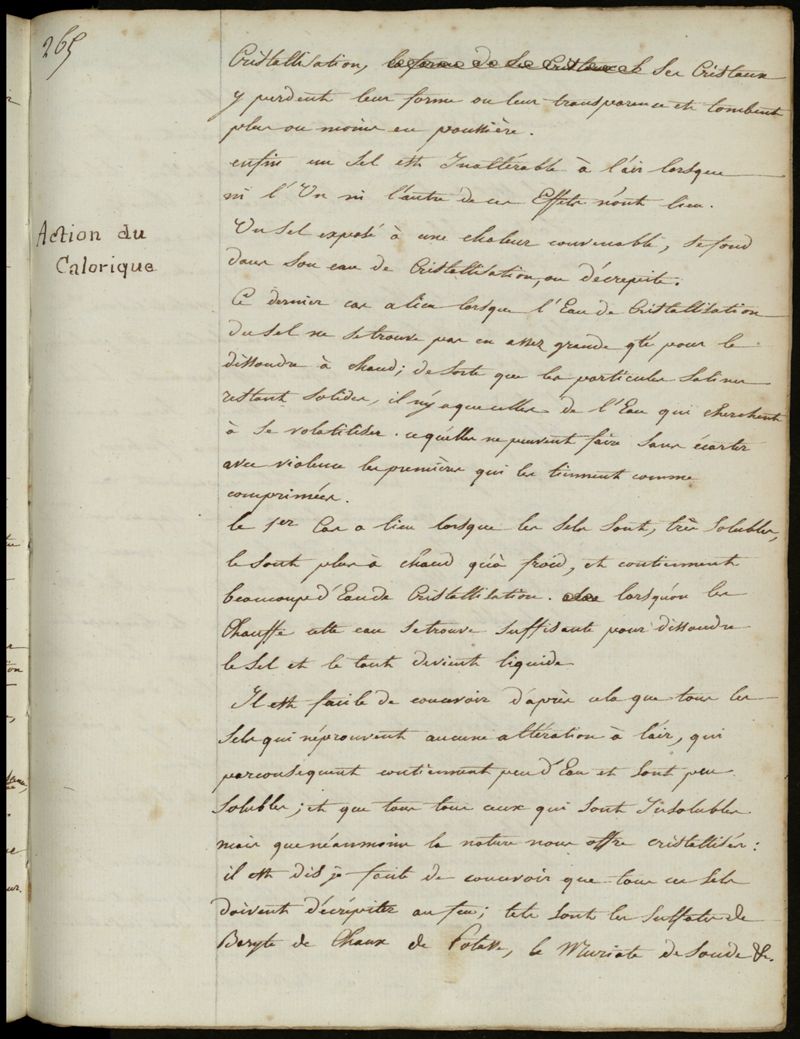 265
Cristallisation, la forme de ses Cristaux et Ses Cristaux
y perdent leur forme ou leur transparence et tombent
plus ou moins en poussière.
enfin un Sel est Inaltérable à l'air lorsque
ni l'Un ni l'autre de ces Effets n'ont lieu.
Action du
Calorique
Un Sel exposé à une chaleur convenable, se fond
dans Son eau de Cristallisation, ou décrepite.
Ce dernier cas a lieu lorsque l'Eau de Cristallisation
du Sel ne Se trouve pas en assez grande qté pour le
dissoudre à chaud; de Sorte que les particules Salines
restant Solides, il n'y a que celles de l'Eau qui cherchent
à Se volatiliser. ce qu'elles ne peuvent faire Sans écarter
avec violence les premières qui les tiennent comme
comprimées.
le 1er Cas a lieu lorsque les Sels Sont, très Solubles,
le Sont plus à chaud qu'à froid, et contiennent
beaucoup d'Eau de Cristallisation. lorsqu'on les
Chauffe cette eau Se trouve Suffisante pour dissoudre
le Sel et le tout devient liquide
Il est facile de concevoir d'après cela que tous les
Sels qui n'éprouvent aucune altération à l'air, qui
par consequent contiennent peu d'Eau et Sont peu
Solubles; et que tous tous ceux qui Sont Insolubles
mais que néanmoins la nature nous offre cristallisés:
il est dis je facile de concevoir que tous ces Sels
doivent décrépiter au feu; tels Sont les Sulfates de
Baryte de Chaux de Potasse, le Muriate de Soude &c.